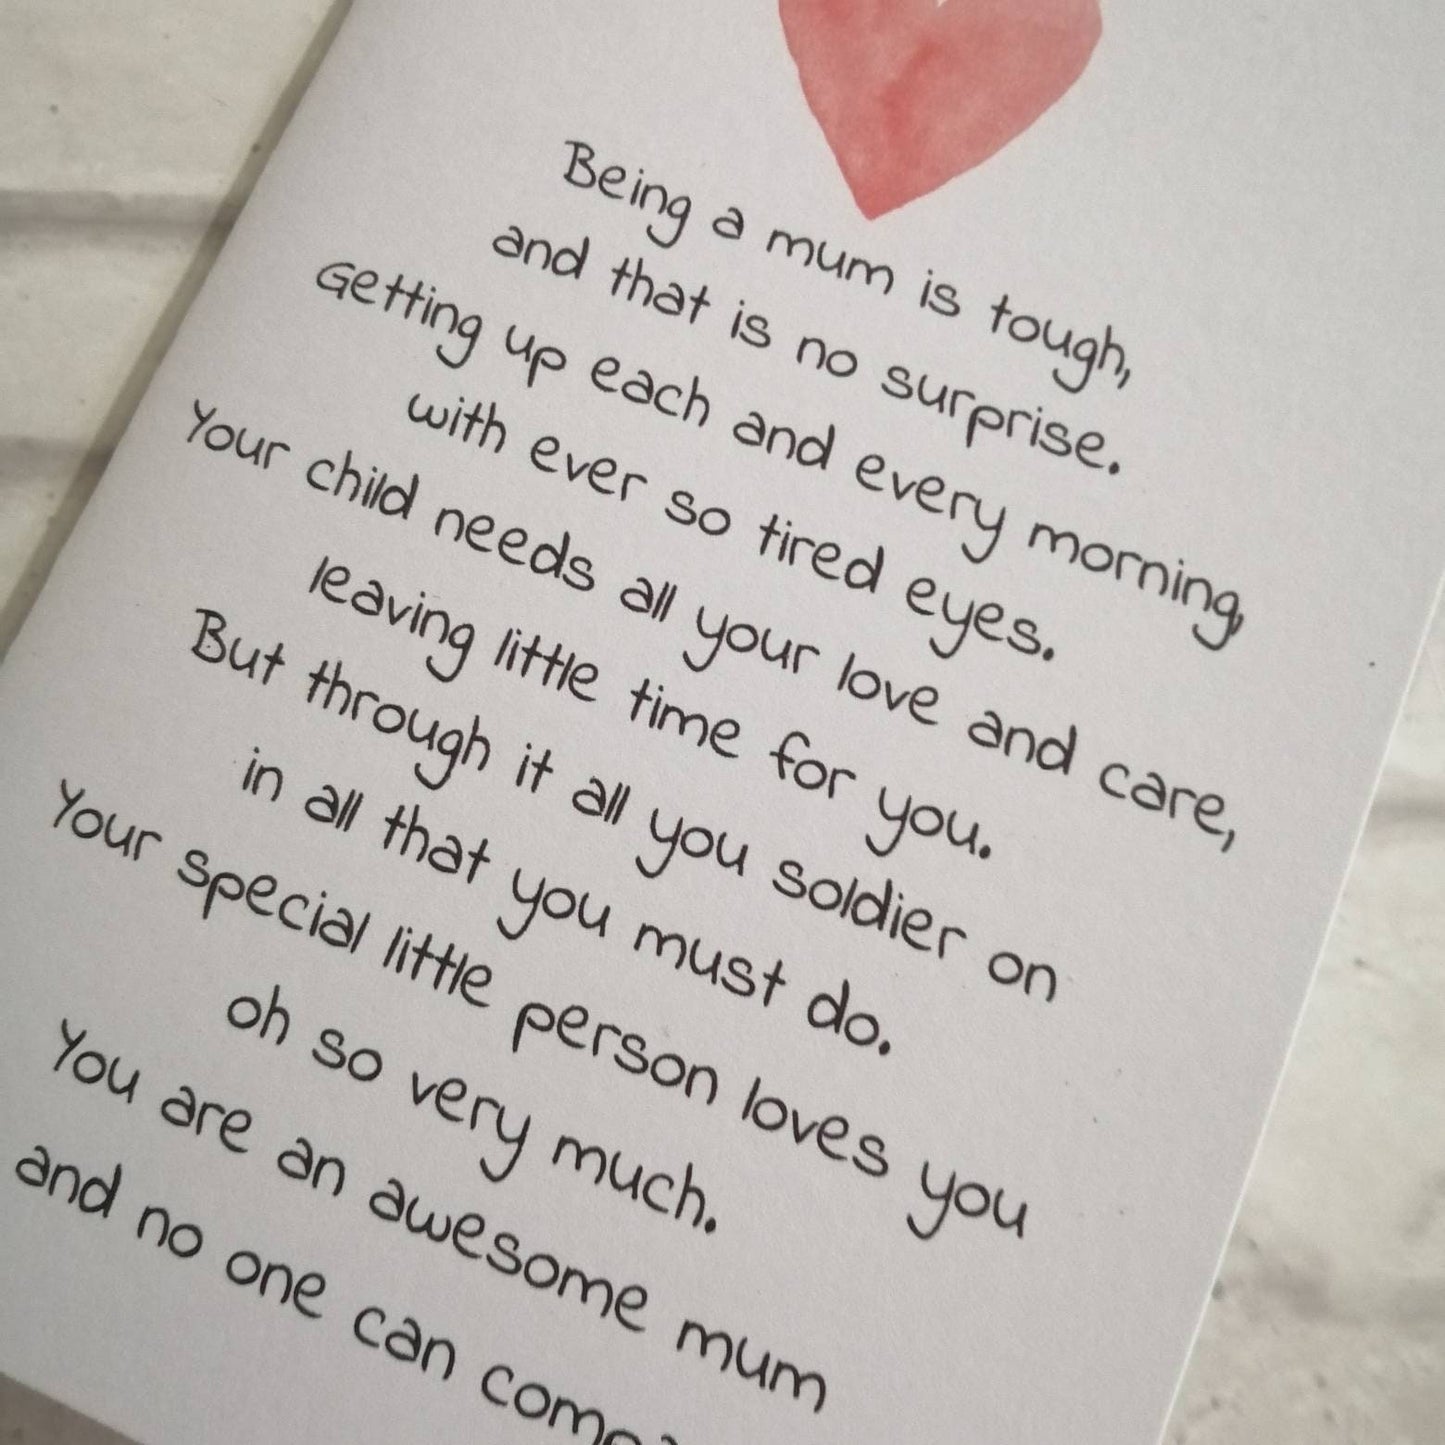 Being a mum is tough,
and that is no surprise.
Getting up each and every morning,
with ever so tired eyes.
Your child needs all your love and care,
leaving little time for you.
But through it all you soldier on
in all that you must do.
Your special little person loves you
oh so very much.
You are an awesome mum
and no one can